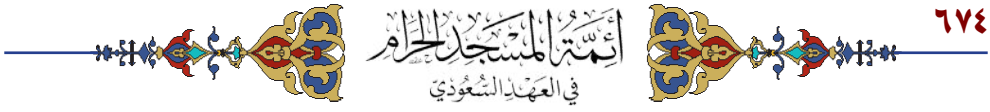 ٦٧٤
أئمة المسجد الحرام
في العهد السعودي